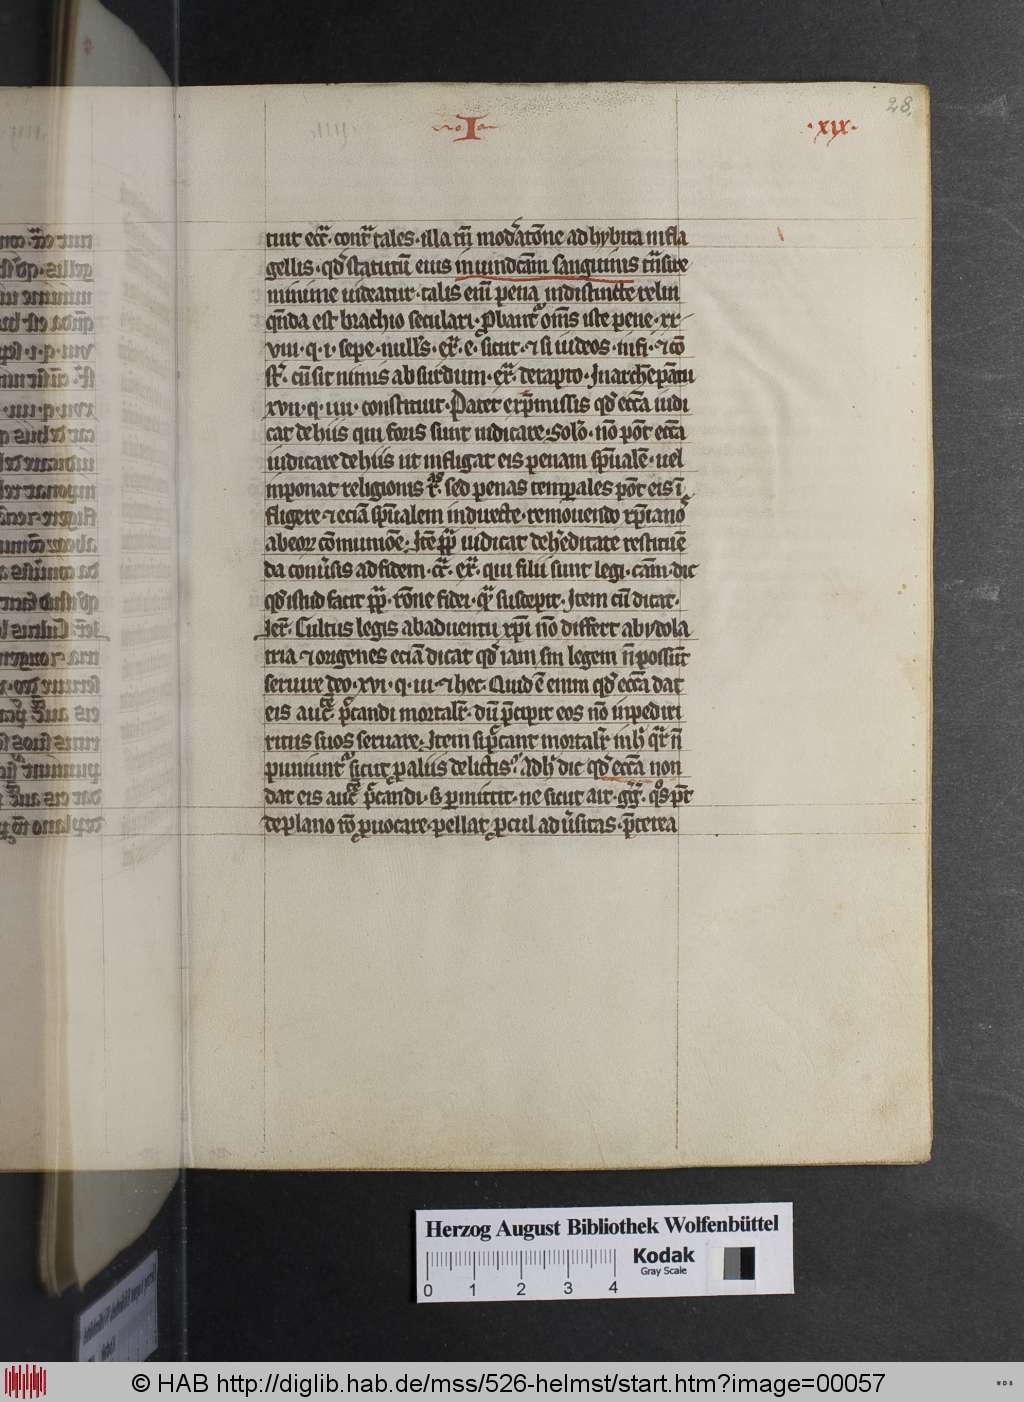 28
I
·xix·
tiut ecc̄. cont̄ tales · illa tn̄ mod̓atōne adhybita in fla
gellis · qd̓ statutū eius in uindc̄am sanguinis tn̄sire
minime uideatur · talis eni̅ pena indistincte relin
q̄nda est brachio seculari · ꝓbant᷑ om̄s iste pene · xx
viii · q · i · sepe · nullꝰ · ex̄ · e · sicut · ⁊ si iudeos · infi · ⁊ cō
st̄ · cū sit nimis absurdum · ex̄ · de rapto · In archiep̄atu
xvii · q · iiii · constituit · Patet ex p̄missis qd̓ ecc̄a iudi
cat de hiis qui foris sunt iudicare · Solō · nō pōt ecc̄a
iudicare de hiis ut infligat eis penam sp̄ualē · uel
inponat religionis · sed penas temꝑales pōt eis ī
fligere ⁊ eciā sp̄ualem indirecte · remouendo xp̄ianos
ab eoꝝ cōmuniōe · Itē pp̄ iudicat de h̓editate restituē
da conu̓sis ad fidem · ex̄ · qui filii sunt legi · cām · dic
qd̓ istud facit pp̄ · rōne fidei · q̄ suscepit · Item cū dicat ·
Ier̄ · Cultus legis ab aduentu xp̄i nō differt ab ydola
tria ⁊ origenes eciā dicat qd̓ iam sm̄ legem n̄ possūt
seruire deo · xvi · q · iii · ⁊ hec · Quid ē enim qd̓ ecc̄a dat
eis auc̄ · p̄candi mortalr̄ · dū p̄cipit eos nō inpediri
ritus suos seruare · Item si p̄cant mortalr̄ in h̓ q̄r n̄
puniunt᷑ sicut ꝓ aliis delictis · Ad h̓ dic qd̓ ecc̄a non
dat eis auc̄ p̄candi · s̓ ꝑmittit · ne sicut ait · gg̅ · qͦs pōt
de plano rō ꝓuocare · pellat ꝓcul aduersitas · p̄terea
Herzog August Bibliothek Wolfenbüttel
Kodak
Gray Scale
0 1 2 3 4
© HAB http://diglib.hab.de/mss/526-helmst/start.htm?image=00057